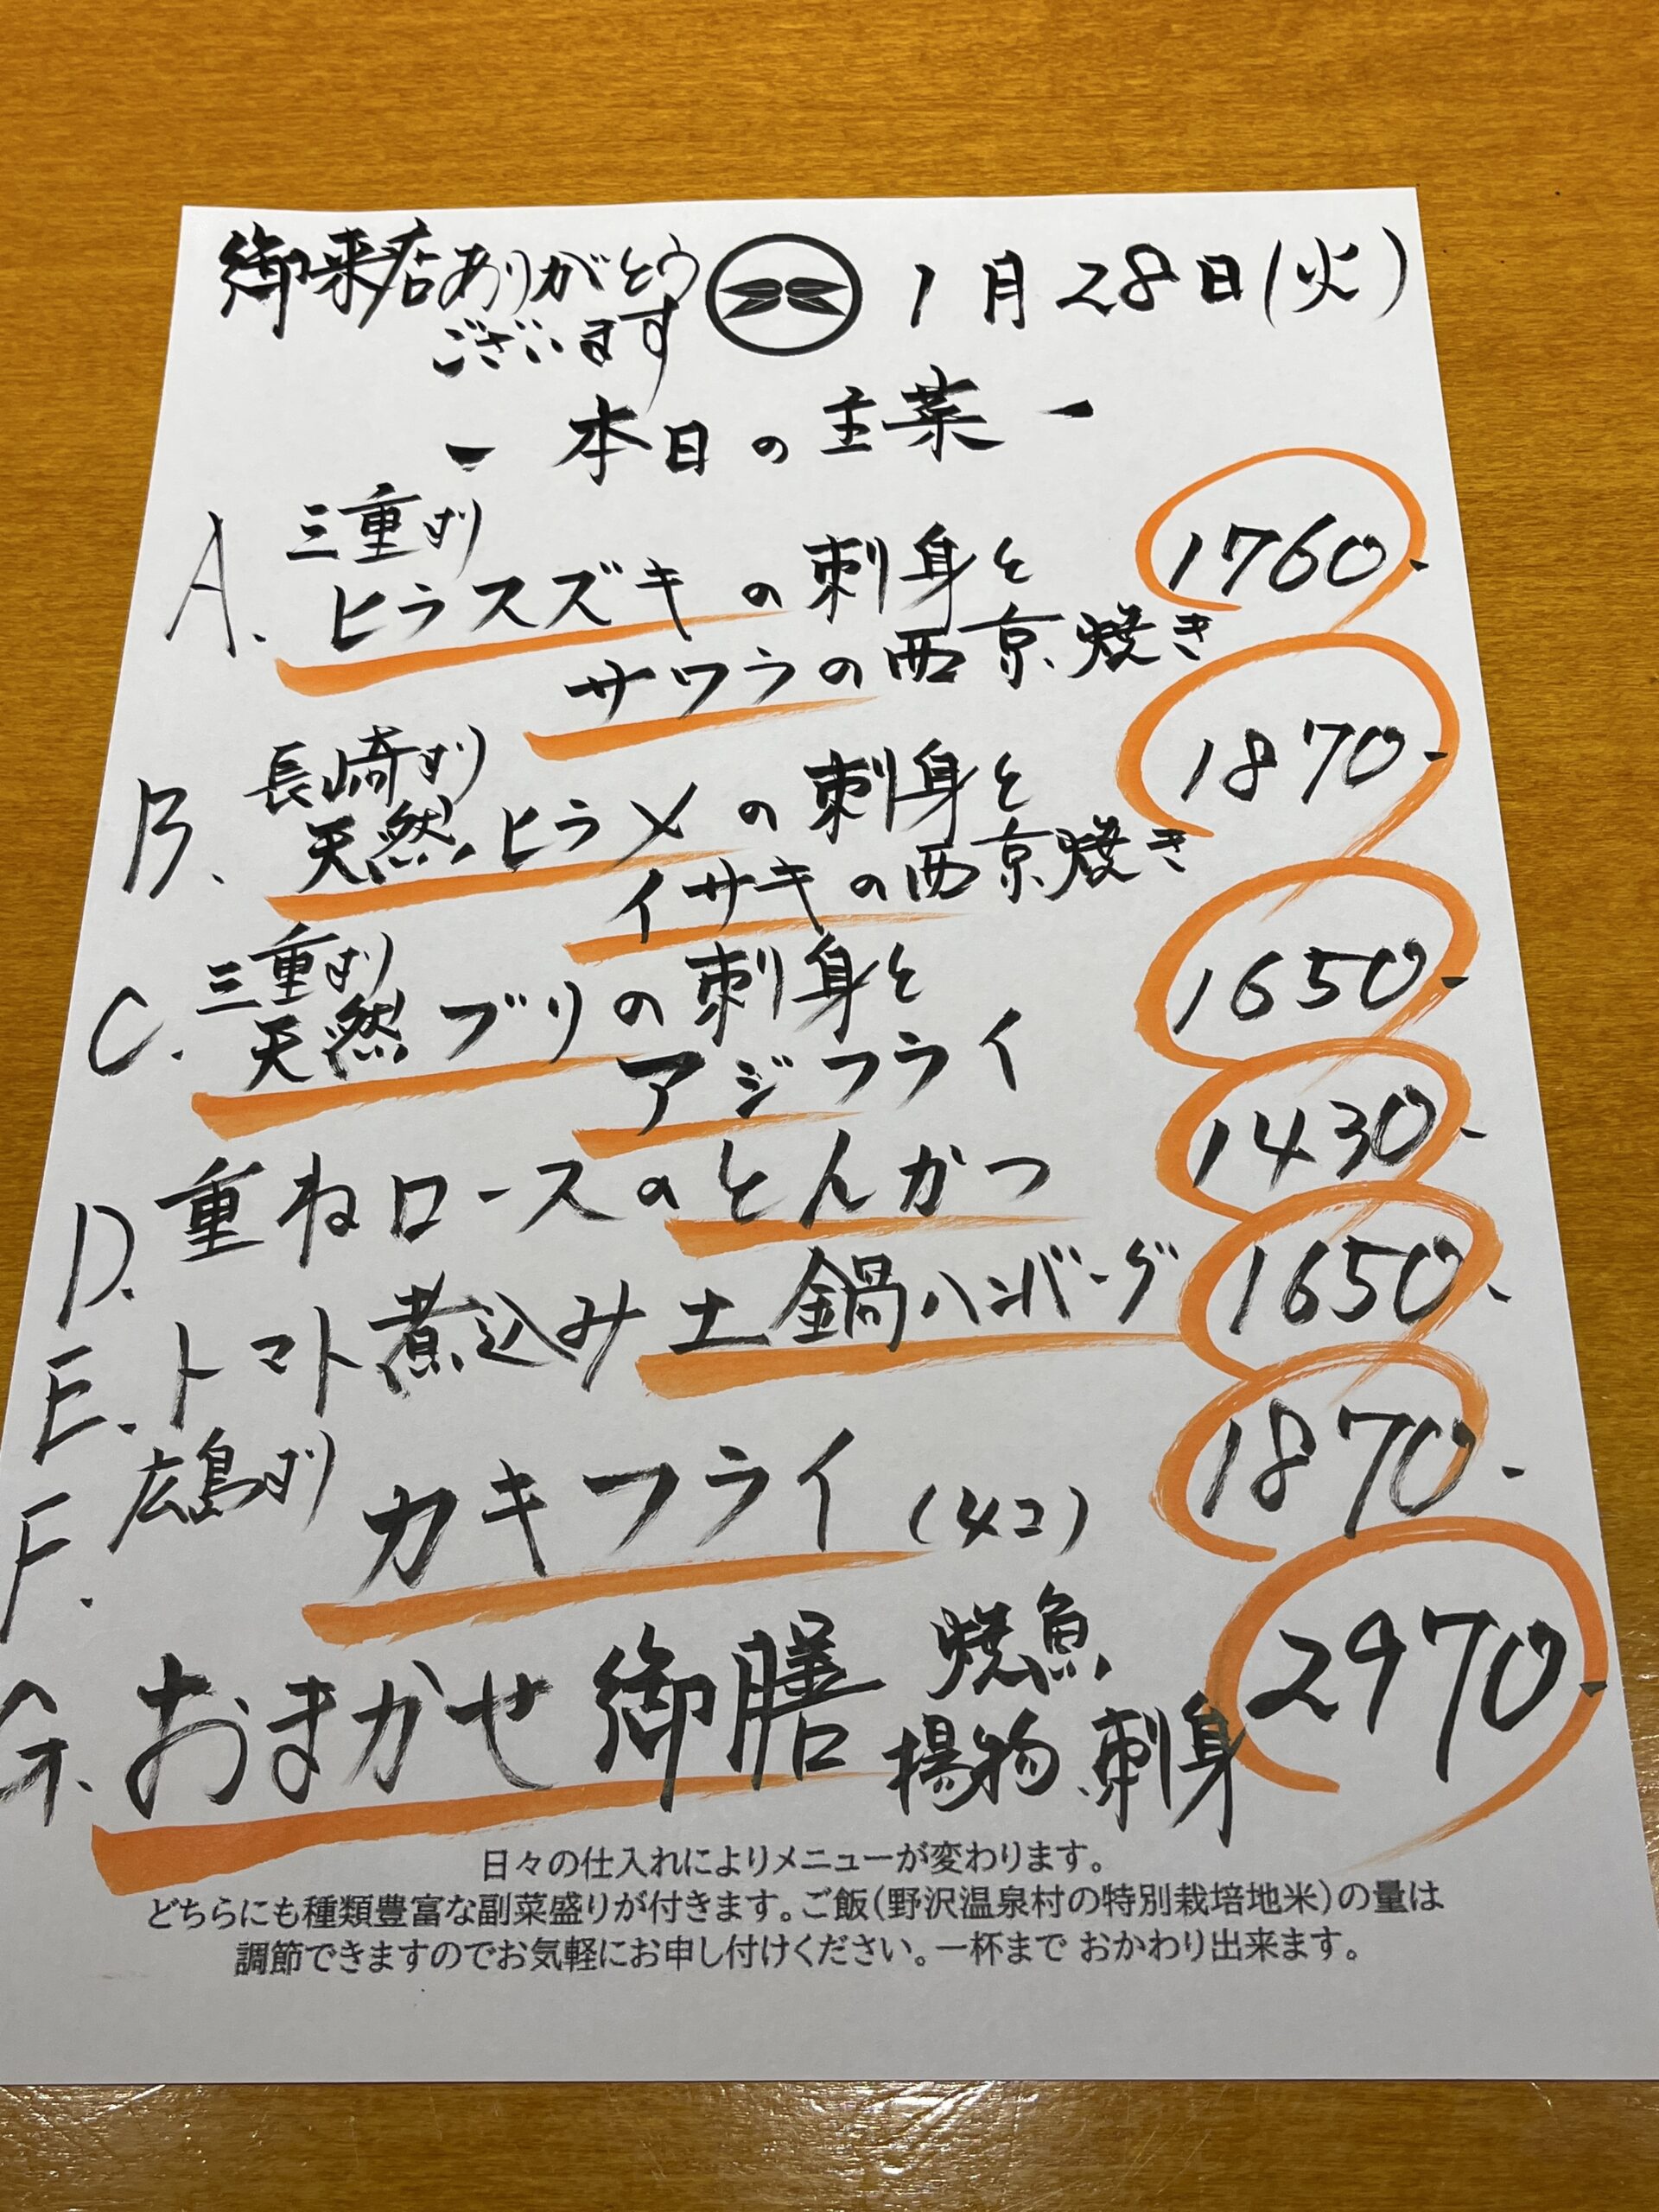 御来店ありがとう
ございます
1月28日(火)
- 本日の主菜 -
A. 三重より
ヒラスズキの刺身と
サワラの西京焼き
1760-
B. 長崎より
天然ヒラメの刺身と
イサキの西京焼き
1870-
C. 三重より
天然ブリの刺身と
アジフライ
1650-
D. 重ねロースのとんかつ 1430-
E. トマト煮込み土鍋ハンバーグ 1650-
F. 広島より
カキフライ (4コ) 1870-
G. おまかせ御膳 焼魚
揚物、刺身 2970-
日々の仕入れによりメニューが変わります。
どちらにも種類豊富な副菜盛りが付きます。ご飯(野沢温泉村の特別栽培地米)の量は
調節できますのでお気軽にお申し付けください。一杯まで おかわり出来ます。